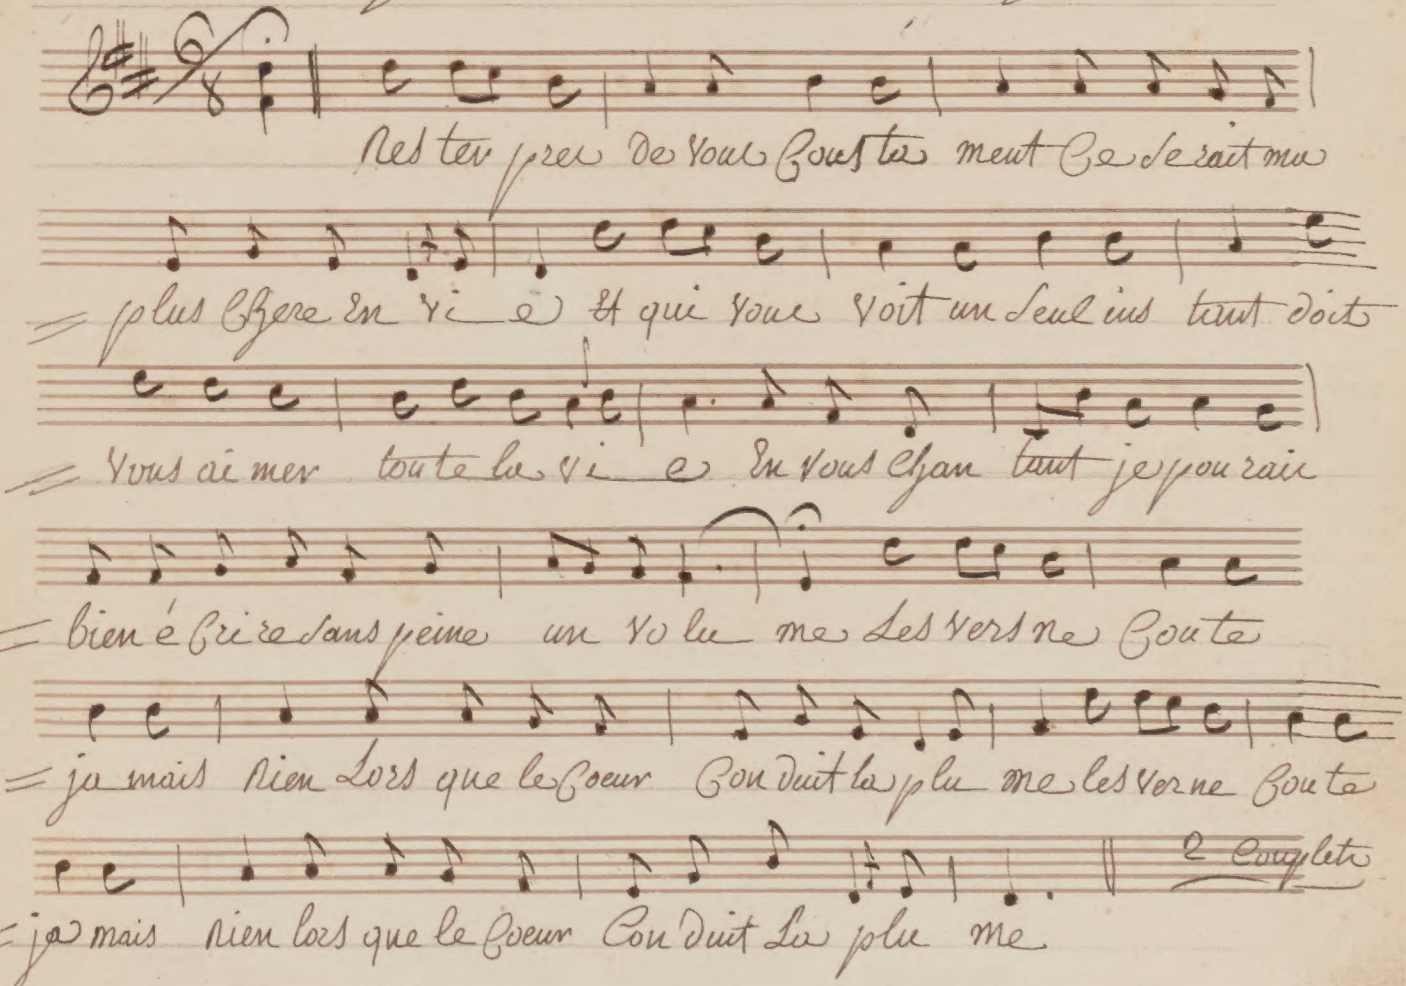 Res ter pres de vous Cons ta ment Ce serait ma
= plus Chere en vi e Et qui vous voit un seul ins tant doit
= vous ai mer toute la vi e en vous Chan tant je pou rais
= bien é Crire sans peine un vo lu me Les vers ne Coute
= ja mais rien Lors que le Coeur Con duit la plu me les ver ne Coute
= ja mais rien lors que le Coeur Con duit La plu me 2 Couplets